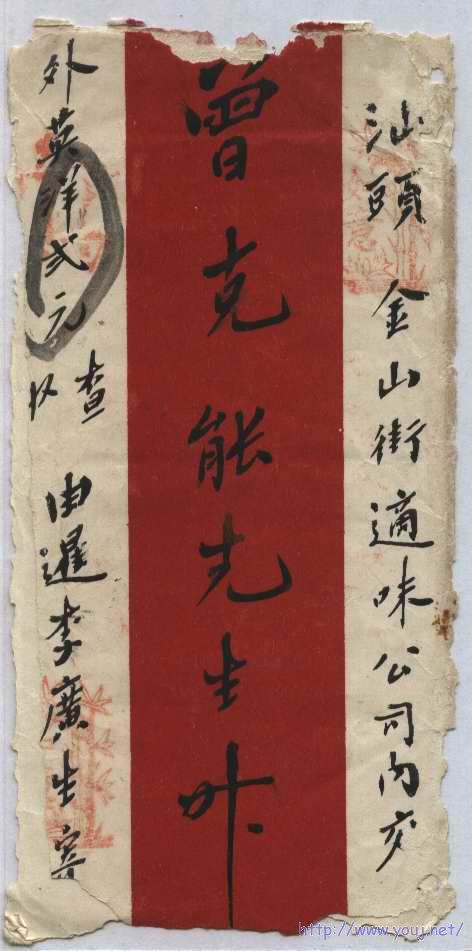 汕頭 金山街適味公司內交
曾克能先生升
外英洋弍元
查收
由暹李廣生寄
http://www.youj.net/